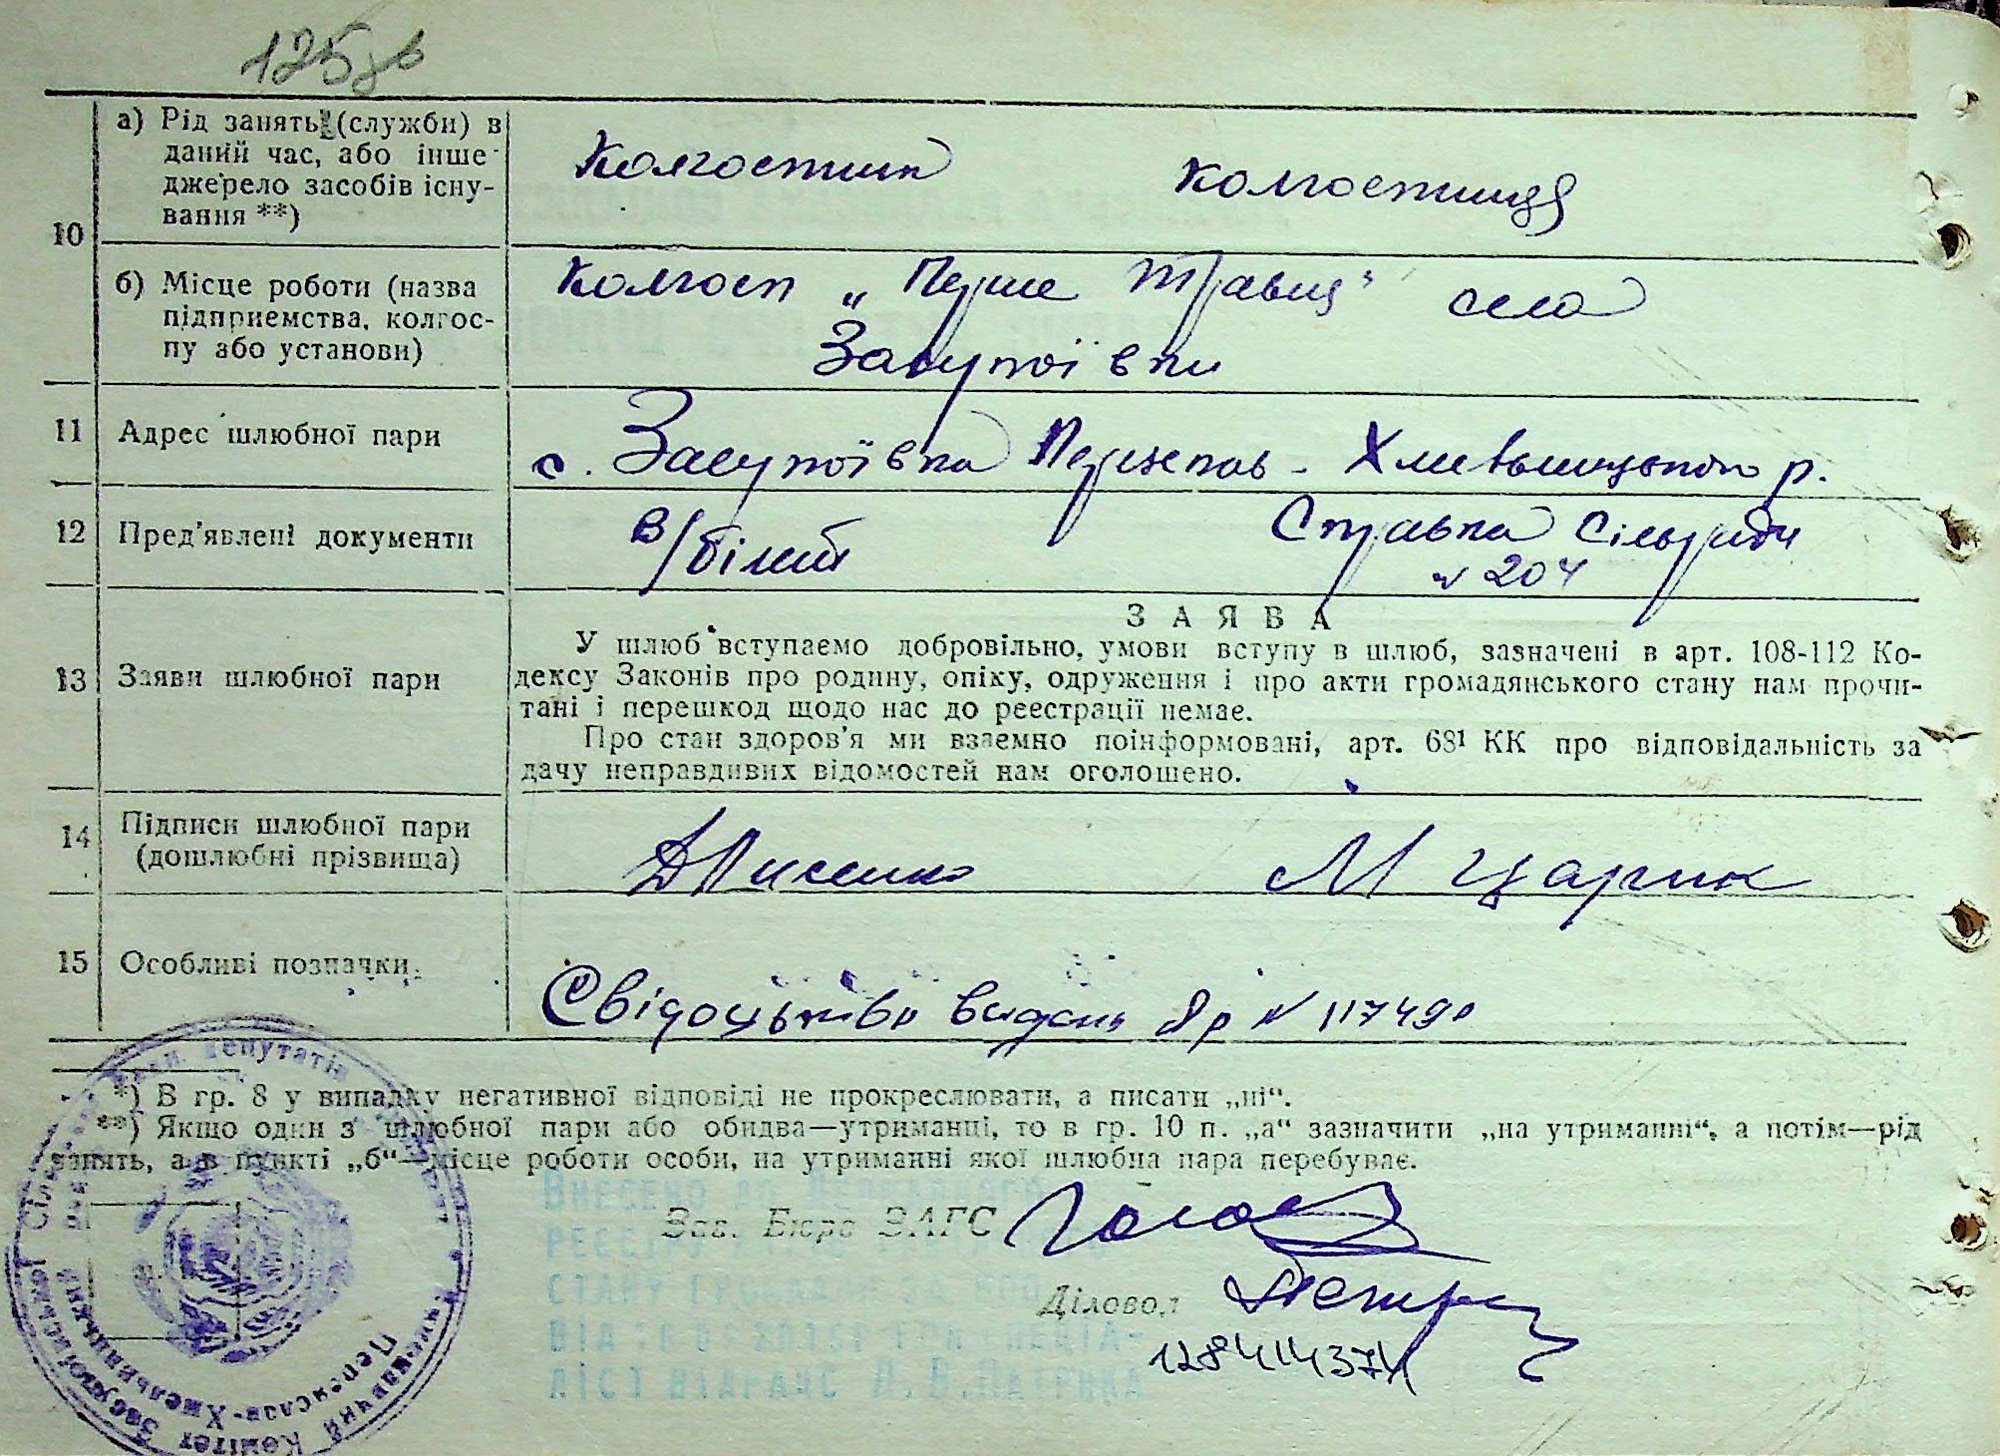 125зв
10
а) Рід занять (служби) в
даний час, або інше
джерело засобів існу-
вання **)
Колгоспник Колгоспниця
б) Місце роботи (назва
підприємства, колгос-
пу або установи)
Колгосп „Перше травня" села
Засупоївки
11 Адрес шлюбної пари
с. Засупоївка Переяслав-Хмельницького р.
12 Пред'явлені документи
в/білет Справка Сільради
№ 204
13 Заяви шлюбної пари
ЗАЯВА
У шлюб вступаємо добровільно, умови вступу в шлюб, зазначені в арт. 108-112 Ко-
дексу Законів про родину, опіку, одруження і про акти громадянського стану нам прочи-
тані і перешкод щодо нас до реестрації немае.
Про стан здоров'я ми взаемно поінформовані, арт. 68¹ КК про відповідальність за
дачу неправдивих відомостей нам оголошено.
14 Підписи шлюбної пари
(дошлюбні прізвища)
Лисенко М Царик
15 Особливі позначки.
Свідоцьтво видано № 117490
*) В гр. 8 у випадку негативної відповіді не прокреслювати, а писати „ні“.
**) Якщо один з шлюбної пари або обидва—утриманці, то в гр. 10 п. „а“ зазначити „на утриманні“, а потім—рід
занять, а в пункті „б“—місце роботи особи, на утриманні якої шлюбна пара перебуває.
Зав. Бюро ЗАГС
Діловод
Внесено до
реєстру
стану громадян
ліст ВДРАЦС Л.В.Патрика
Виконавчий Комітет Засупоївської Сільської Ради депутатів
Переяслав-Хмельницький